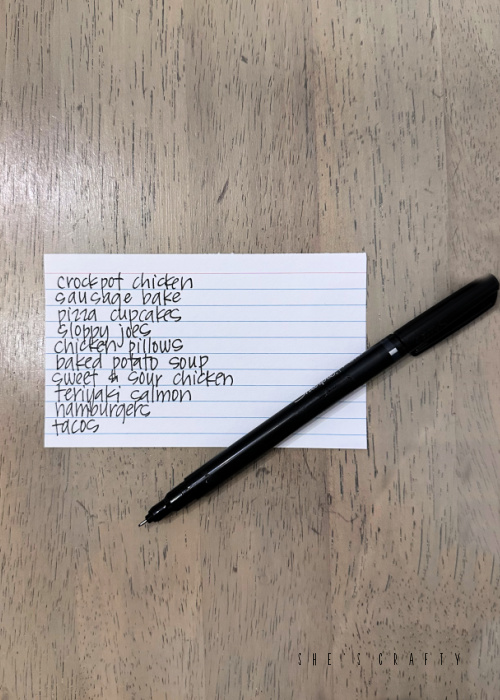 crockpot chicken
sausage bake
pizza cupcakes
sloppy joes
chicken pillows
baked potato soup
sweet & sour chicken
teriyaki salmon
hamburgers
tacos
SHE'S CRAFTY